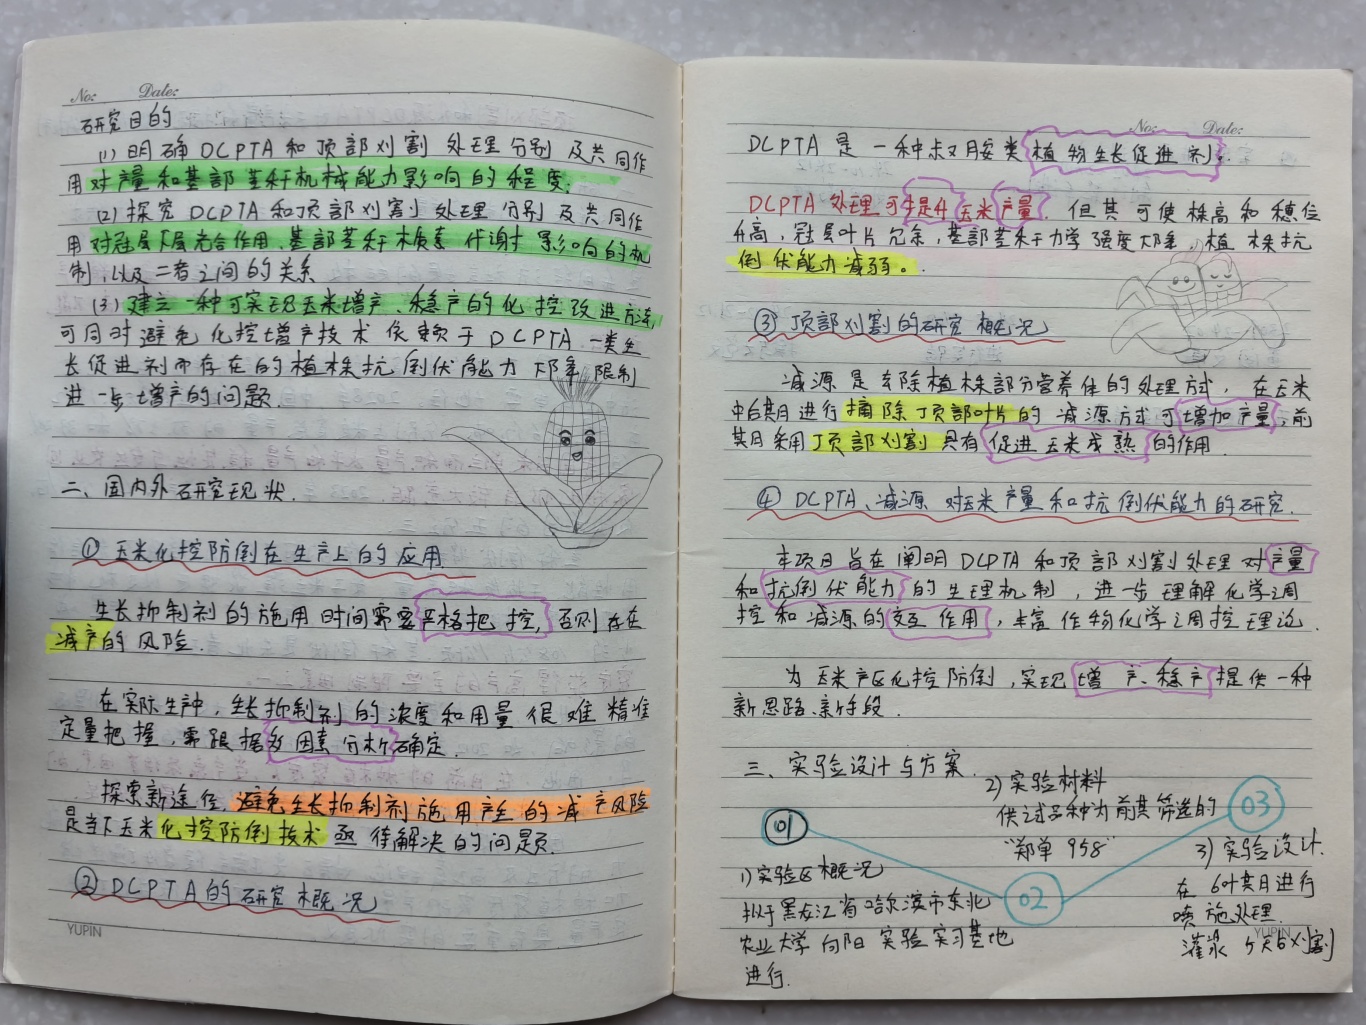 No: Date:
研究目的
(1) 明确DCPTA和顶部刈割处理分别及共同作
用对产量和基部茎秆机械能力影响的程度;
(2) 探究DCPTA和顶部刈割处理分别及共同作
用对冠层下层光合作用、基部茎秆木质素代谢影响的机
制,以及二者之间的关系
(3) 建立一种可实现玉米增产、稳产的化控改进方法,
可同时避免化控增产技术依赖于DCPTA一类生
长促进剂而存在的植株抗倒伏能力下降限制
进一步增产的问题.
二、国内外研究现状.
① 玉米化控防倒在生产上的应用
生长抑制剂的施用时间需要严格把控,否则存在
减产的风险.
在实际生产中,生长抑制剂的浓度和用量很难精准
定量把握,需跟据多因素分析确定.
探索新途径,避免生长抑制剂施用产生的减产风险
是当下玉米化控防倒技术亟待解决的问题.
② DCPTA的研究概况
YUPIN
No: Date:
DCPTA是一种叔胺类植物生长促进剂.
DCPTA处理可提升玉米产量.但其可使株高和穗位
升高,冠层叶片冗余,基部茎秆力学强度下降,植株抗
倒伏能力减弱。
③ 顶部刈割的研究概况
减源是去除植株部分营养体的处理方式,在玉米
中后期进行摘除顶部叶片的减源方式可增加产量,前
期采用顶部刈割具有促进玉米成熟的作用.
④ DCPTA、减源对玉米产量和抗倒伏能力的研究.
本项目旨在阐明DCPTA和顶部刈割处理对产量
和抗倒伏能力的生理机制,进一步理解化学调
控和减源的交互作用,丰富作物化学调控理论.
为玉米产区化控防倒,实现增产、稳产提供一种
新思路、新手段.
三、实验设计与方案.
01
1) 实验区概况
拟于黑龙江省哈尔滨市东北
农业大学向阳实验实习基地
进行.
2) 实验材料
供试品种为前期筛选的
"郑单958"
02
03
3) 实验设计.
在6叶期进行
喷施处理.
灌浆 刈割
YUPIN